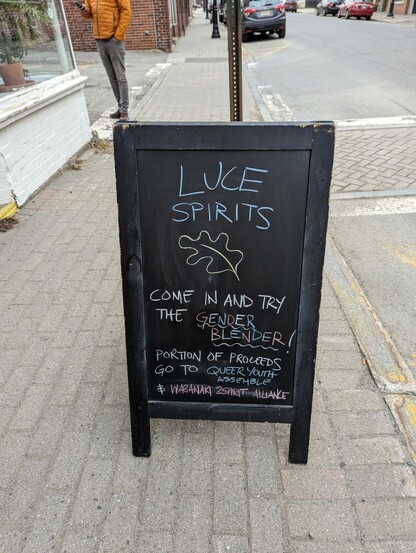 LUCE
SPIRITS
COME IN AND TRY
THE GENDER
BLENDER!
PORTION OF PROCEEDS
GO TO QUEER YOUTH
ASSEMBLE
& WABANAKI 2SPIRIT ALLIANCE